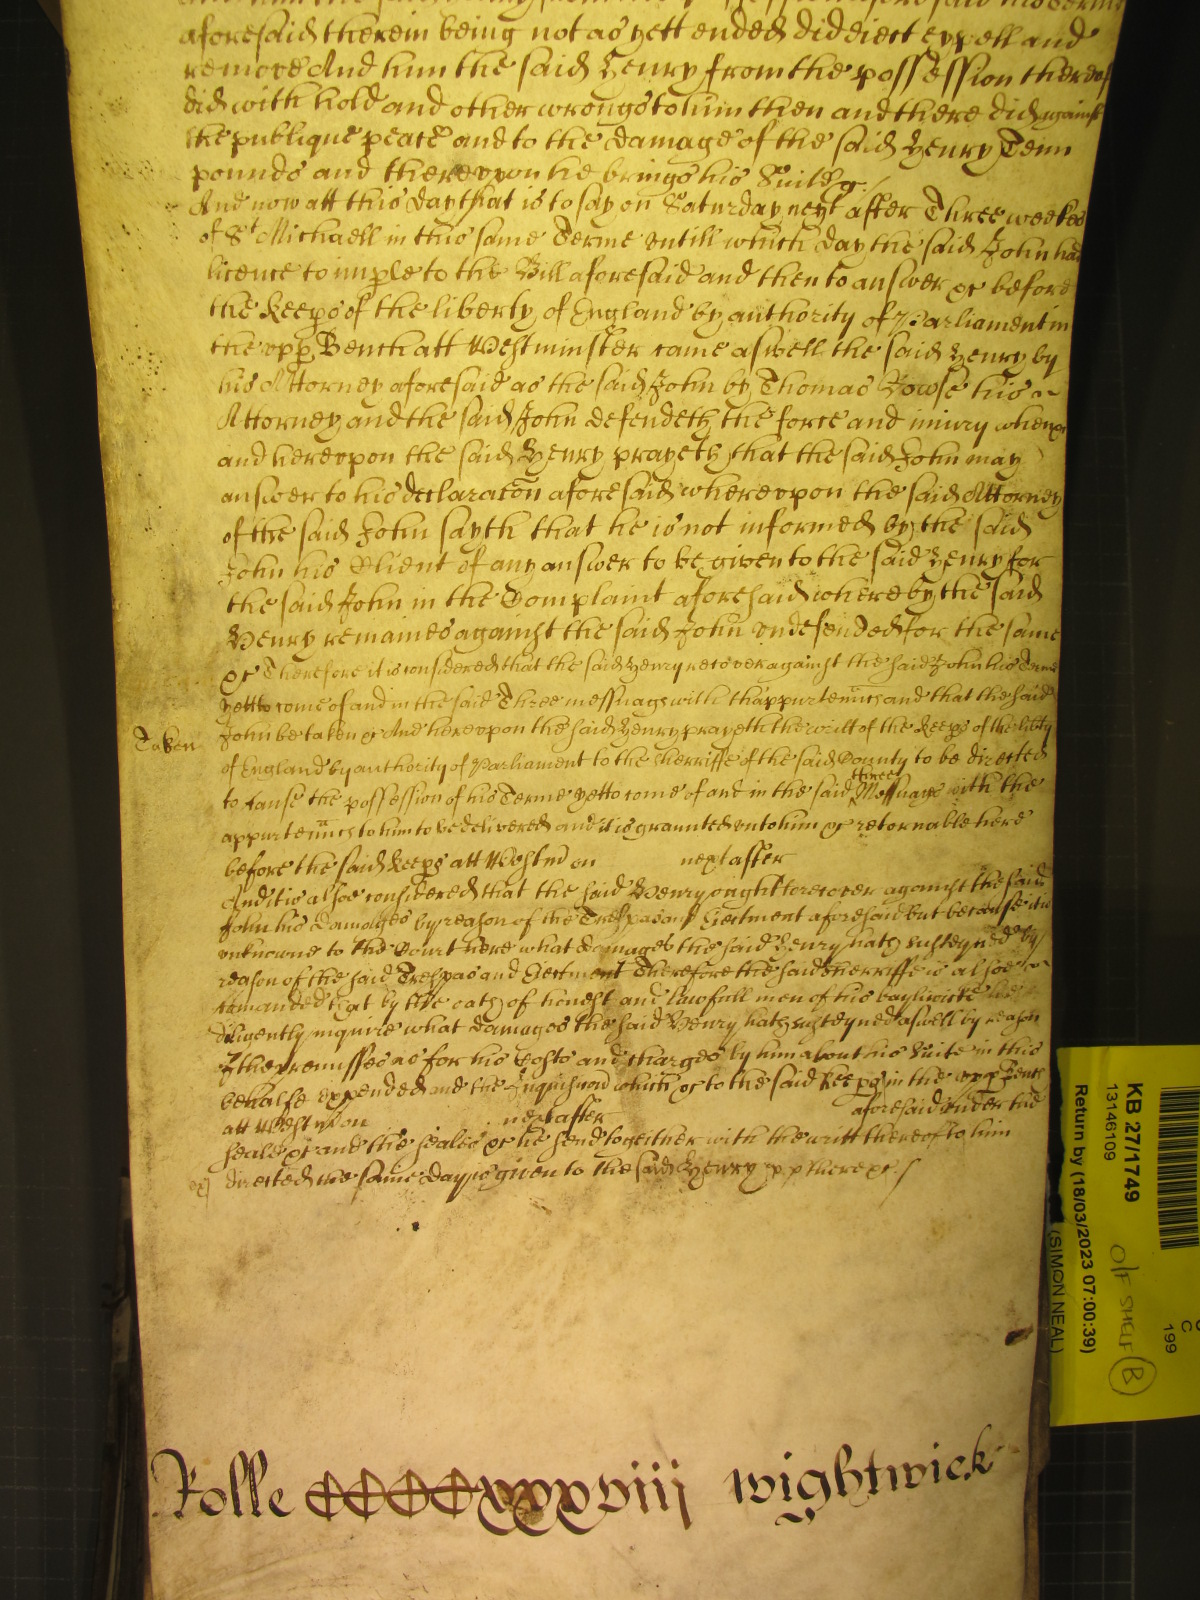 aforesaid therein being not as yett ended did eiect expell and
remove And him the said Henry from the possession thereof
did with hold and other wrongs to him then and there did against
the publique peace and to the damage of the said Henry Tenn
pounds and therevpon he brings his Suite &c./
And now att this day that is to say on Saturday next after Three weekes
of St Michaell in this same Terme vntill which day the said John had
licence to imple to the Bill aforesaid and then to answer &c before
the Keeps of the liberty of England by authority of Parliament in
the vpp Bench att Westminster came aswell the said Henry by
his Attorney aforesaid as the said John by Thomas Rowse his
Attorney and the said John defendeth the force and iniury when &c
and herevpon the said Henry prayeth that the said John may
answer to his declaracon aforesaid wherevpon the said Attorney
of the said John sayth that he is not informed by the said
John his Client of any answer to be given to the said Henry for
the said John in the Complaint aforesaid whereby the said
Henry remaines against the said John vndefended for the same
&c Therefore it is considered that the said Henry recover against the said John his Terme
yett to come of and in the said Three messuags with thappurtenncs and that the said
Taken
John be taken &c And herevpon the said Henry prayeth the writt of the Keeps of the liberty
of England by authority of Parliament to the Sherriffe of the said County to be directed
to cause the possession of his Terme yett to come of and in the said three Messuags with the
appurtenncs to him to be delivered and it is graunted vnto him &c retornable here
before the said Keeps att Westm on next after
And it is alsoe considered that the said Henry ought to recover against the said
John his damages by reason of the Trespas and Eiectment aforesaid But because it is
vnknowne to the Court here what damages the said Henry hath susteyned by
reason of the said Trespas and Eiectment Therefore the said Sherriffe is alsoe
comanded that by the oath of honest and lawfull men of his bayliwicke hee
diligently inquire what damages the said Henry hath susteyned aswell by reason
of the premisses as for his Costs and charges by him about his Suite in this
behalfe expended and the Inquisicon which &c to the said Keeps in the vpp Bench
att Westm on next after aforesaid vnder the
seale &c and the seales &c he send together with the writt thereof to him
directed the same day is given to the said Henry &c
Rolle CCCCxxxviii wightwick
KB 27/1749
13146109
Return by (18/03/2023 07:00:39)
(SIMON NEAL)
O/F SHELF B
C
199